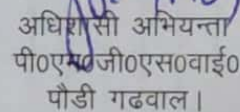 अधिशासी अभियन्ता
पी०एम०जी०एस०वाई०
पौडी गढवाल।